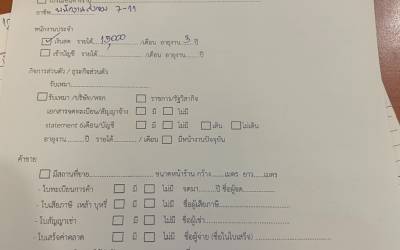 อาชีพ..พนักงานส่งของ 7-11
พนักงานประจำ
☑ เงินสด รายได้ 15,000 /เดือน อายุงาน 3 ปี
☐ เข้าบัญชี รายได้............../เดือน อายุงาน.......ปี
กิจการส่วนตัว / ธุรกิจส่วนตัว
รับเหมา..............
☐ รับเหมา /บริษัท/หจก ☐ ราชการ/รัฐวิสาหกิจ
เอกสารจดทะเบียน/สัญญาจ้าง ☐ มี ☐ ไม่มี
statement 6เดือน/บัญชี ☐ มี ☐ ไม่มี ☐ เดิน ☐ ไม่เดิน
อายุงาน..........ปี รายได้............/ เดือน ☐ มีหน้างานปัจจุบัน
ค้าขาย
☐ มีสถานที่ขาย..............ขนาดหน้าร้าน กว้าง.......เมตร ยาว.......เมตร
- ใบทะเบียนการค้า ☐ มี ☐ ไม่มี จดมา.......ปี ชื่อผู้จด..............
- ใบเสียภาษี เหล้า บุหรี่ ☐ มี ☐ ไม่มี ชื่อผู้เสียภาษี..............
- ใบสัญญาเช่า ☐ มี ☐ ไม่มี ชื่อผู้เช่า..............
- ใบเสร็จค่าตลาด ☐ มี ☐ ไม่มี ชื่อผู้จ่าย (ชื่อในใบเสร็จ)..............